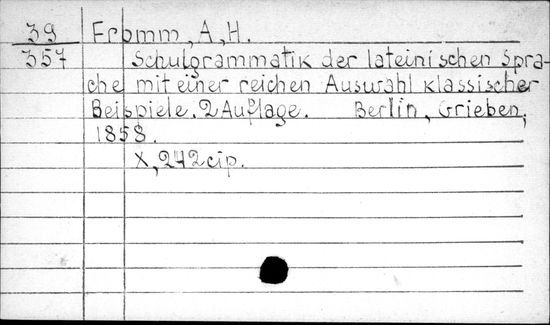 39 Fromm, A, H.
357 Schulgrammatik der lateinischen Spra-
che mit einer reichen Auswahl klassischer
Beispiele. 2 Auflage. Berlin, Grieben,
1858.
X, 242 стр.